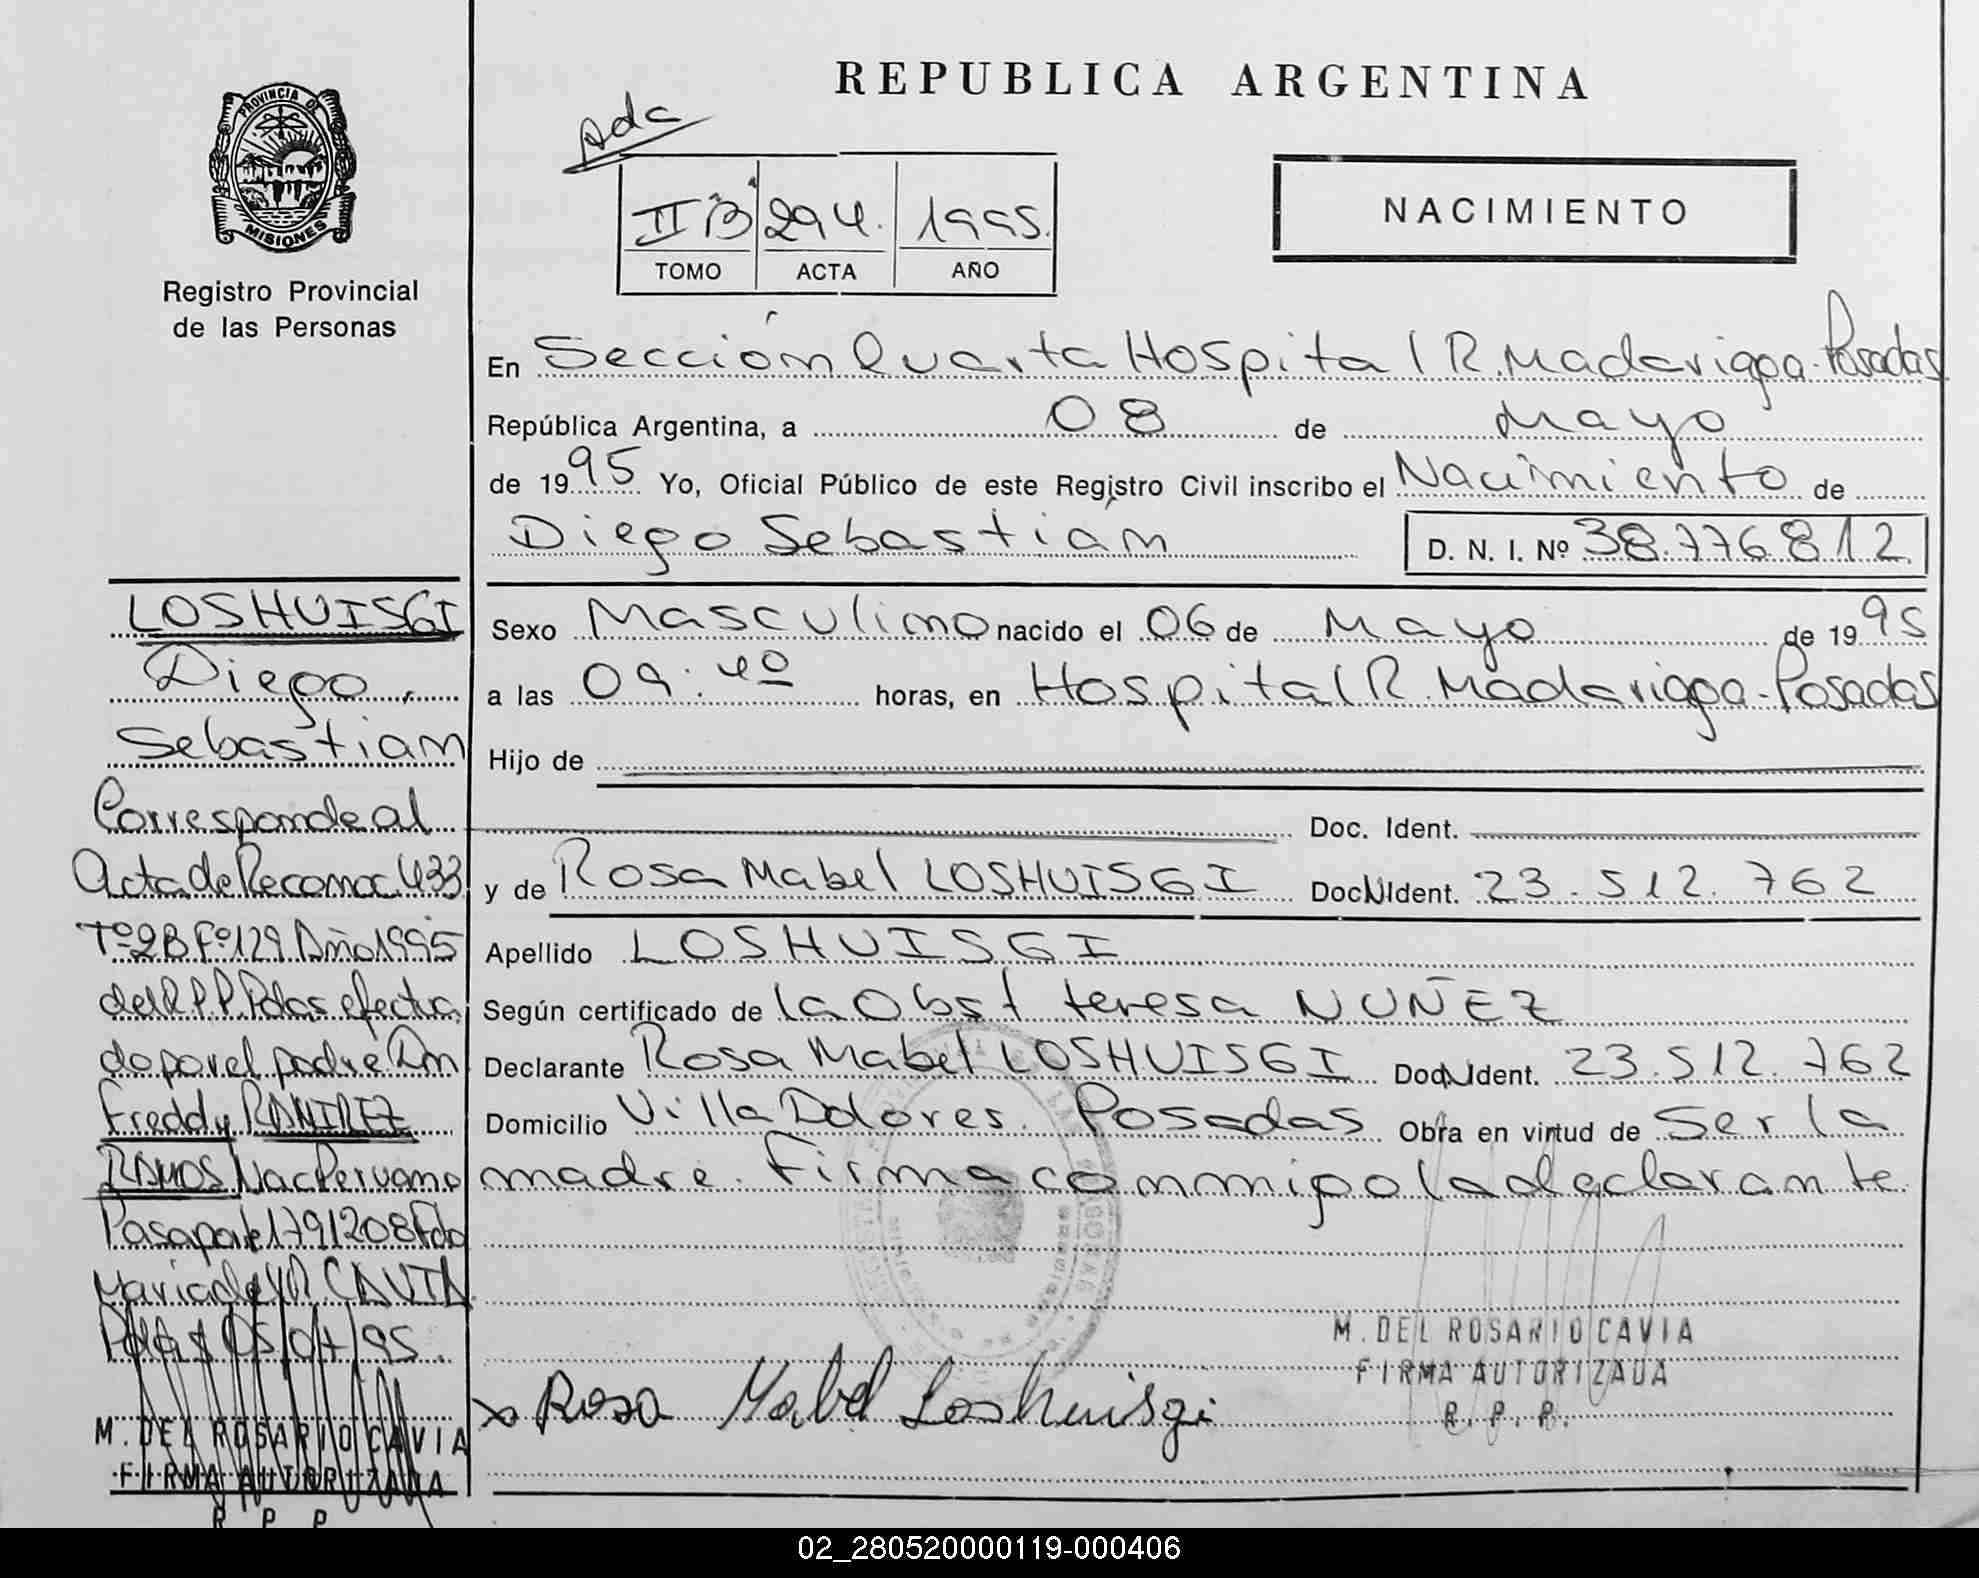 REPUBLICA ARGENTINA
Ada
II B 294. 1995.
TOMO ACTA AÑO
NACIMIENTO
PROVINCIA DE
MISIONES
Registro Provincial
de las Personas
En Sección Cuarta Hospital R. Madariaga - Posadas
República Argentina, a 08 de Mayo
de 1995 Yo, Oficial Público de este Registro Civil inscribo el Nacimiento de
Diego Sebastián D. N. I. Nº 38.776.812
Sexo Masculino nacido el 06 de Mayo de 1995
a las 09:40 horas, en Hospital R. Madariaga - Posadas
Hijo de
Doc. Ident.
y de Rosa Mabel LOSHUISGI Doc N Ident. 23.512.762
Apellido LOSHUISGI
Según certificado de la Obst teresa NUÑEZ
Declarante Rosa Mabel LOSHUISGI Doc N Ident. 23.512.762
Domicilio Villa Dolores. Posadas Obra en virtud de Ser la
madre. Firma conmigo la declarante
M. DEL ROSARIO CAVIA
FIRMA AUTORIZADA
R. P. P.
x Rosa Mabel Loshuisgi
LOSHUISGI
Diego
Sebastian
Corresponde al
Acta de Reconoc 433
Tº 2B Fº 129 Año 1995
del R.P.P. Pdas efectua
do por el padre Dn
Freddy RAMIREZ
RAMOS Nac Peruano
Pasaporte 1791208 Fdo
Maria del R. CAVIA
Pdas 05/07/95.
M. DEL ROSARIO CAVIA
FIRMA AUTORIZADA
R P P
02_280520000119-000406